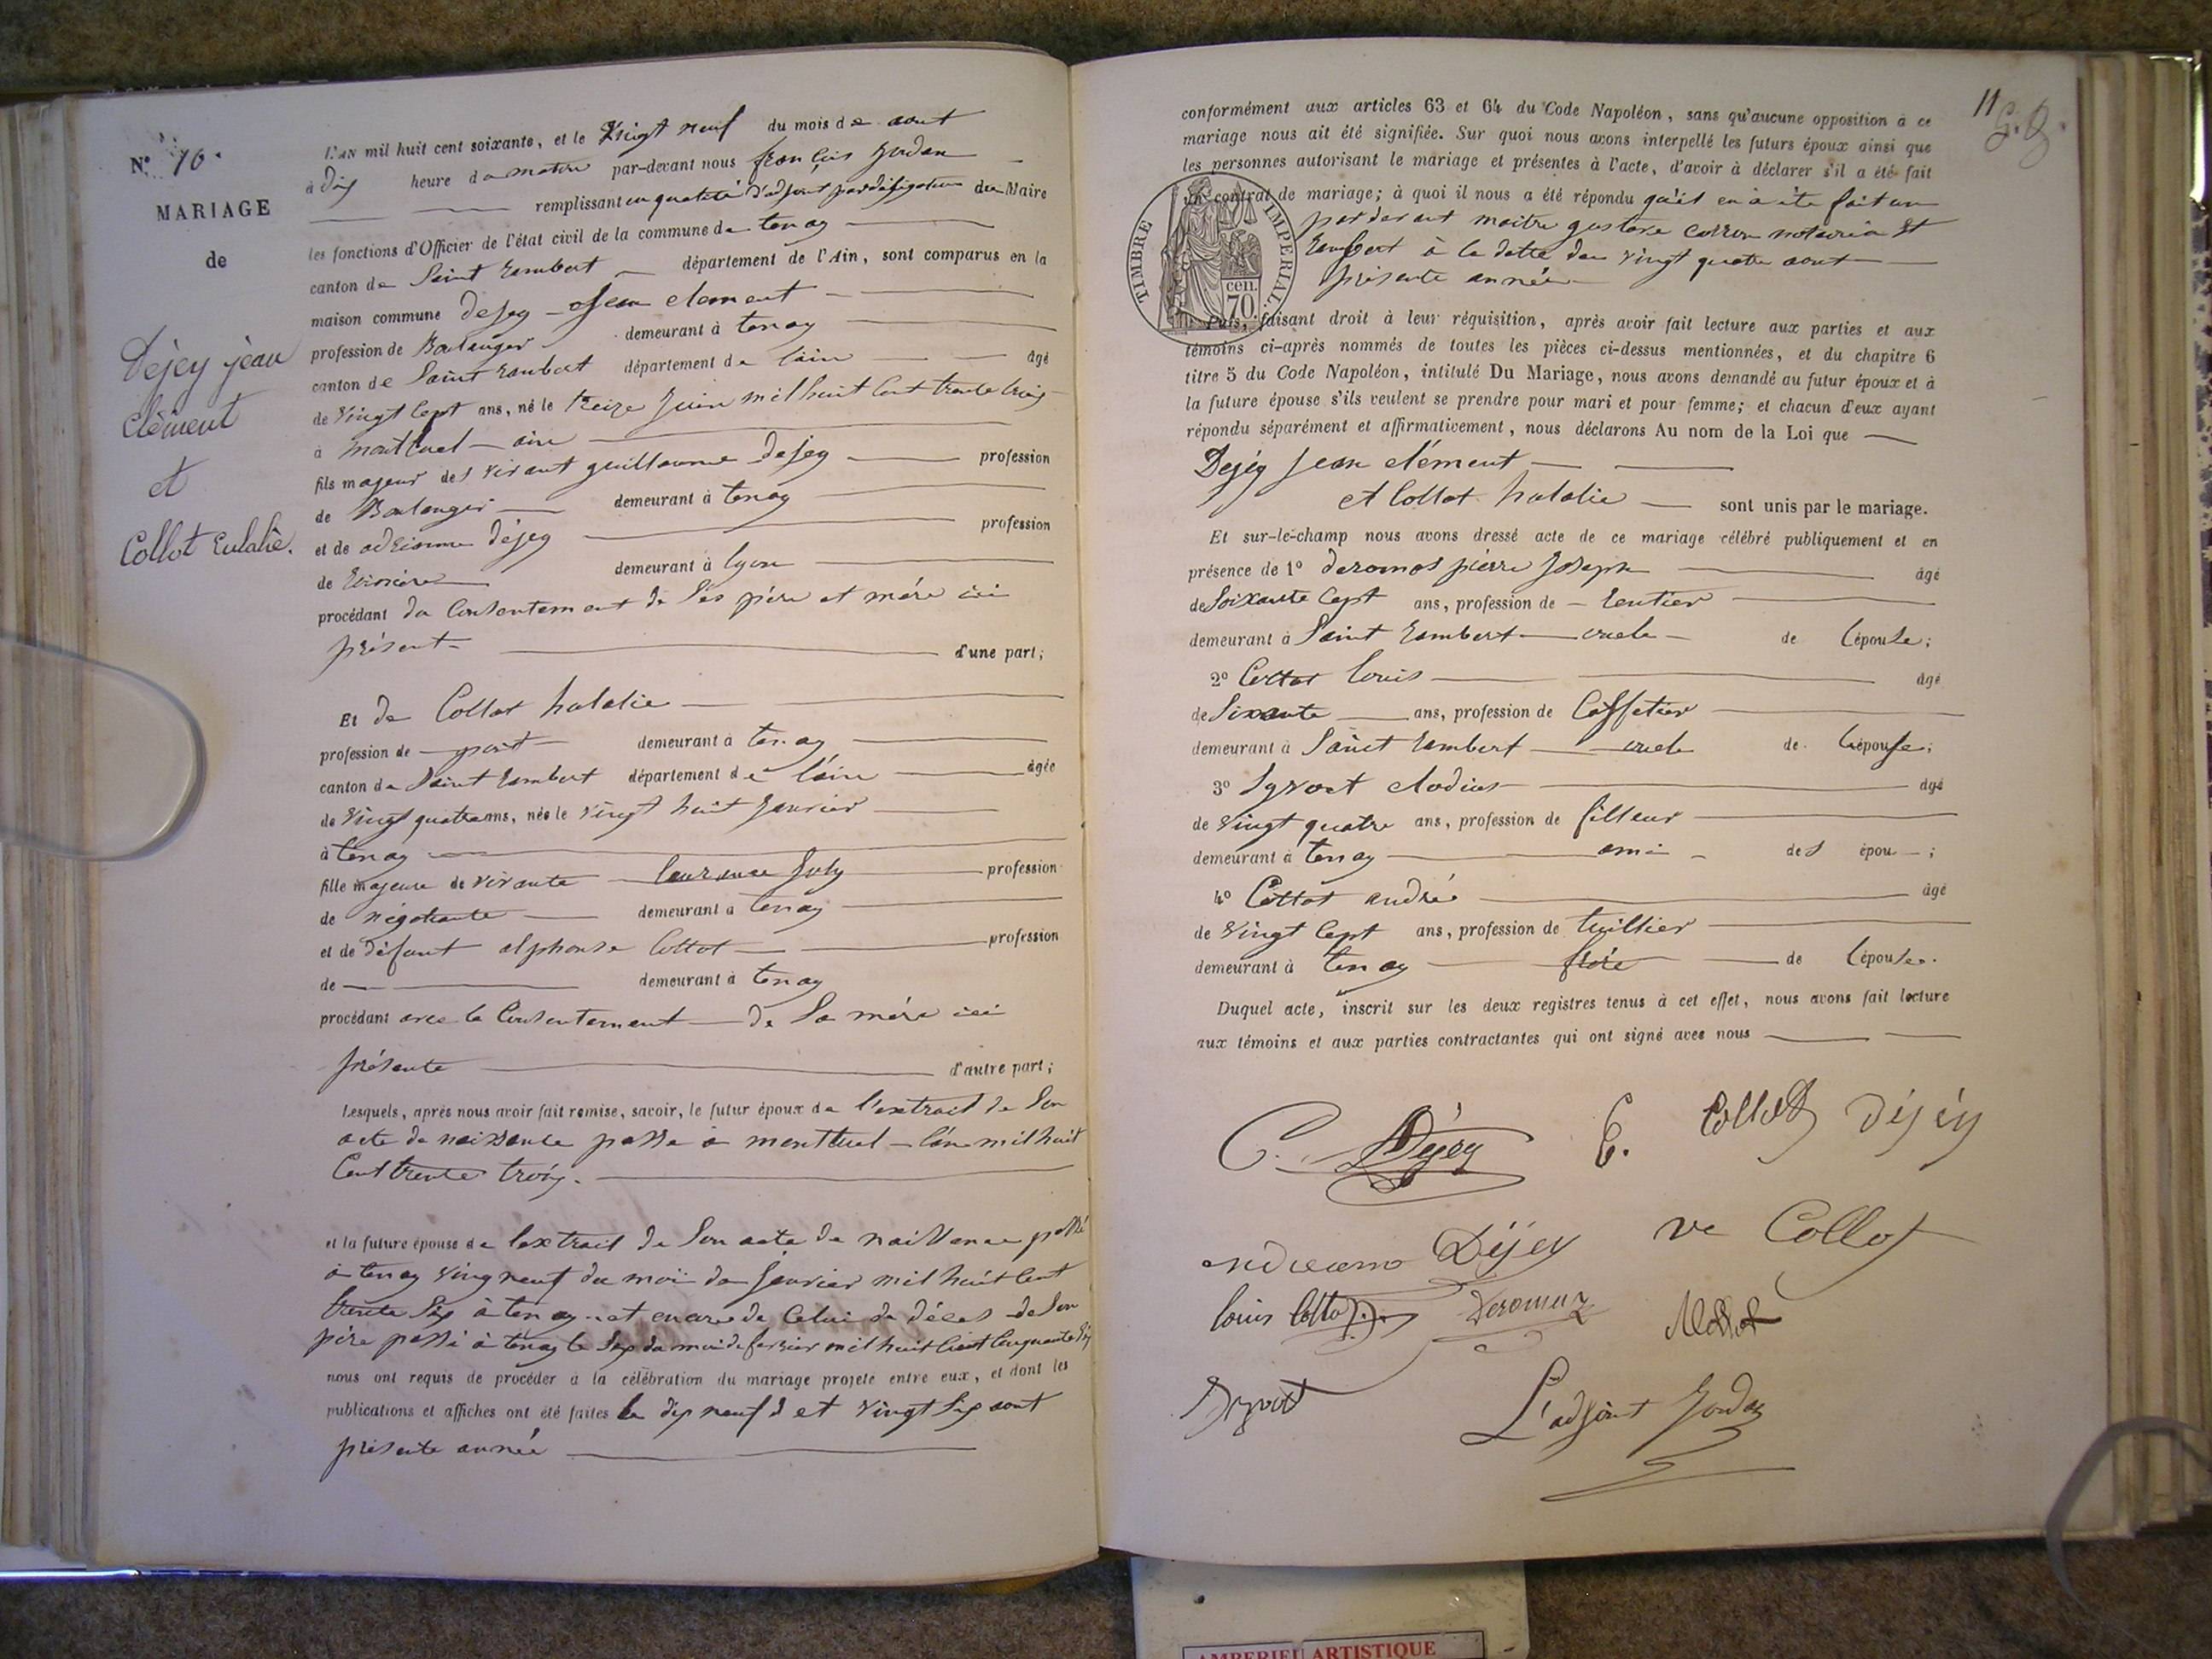 N.o 10.
MARIAGE
de
Déjey jean
Clément
et
Collot Eulalie.
L'AN mil huit cent soixante, et le vingt neuf du mois de aout
à dix heure du matin par-devant nous françois Jordan
remplissant en qualité d'adjoint par délégation du Maire
les fonctions d'Officier de l'état civil de la commune de tenay
canton de Saint Rambert département de l'Ain, sont comparus en la
maison commune dejey Jean clement
profession de Boulanger demeurant à tenay
canton de Saint Rambert département de l'ain âgé
de vingt sept ans, né le treize Juin mil huit cent trente trois
à montluel ain
fils majeur des vivant guillaume dejey profession
de Boulanger demeurant à tenay
et de adrienne déjey profession
de demeurant à lyon
procédant du Consentement de Ses père et mére ici
présent d'une part;
Et de Collot hulalie
profession de demeurant à tenay
canton de Saint Rambert département de l'ain âgée
de vingt quatre ans, née le vingt huit Janvier
à tenay
fille majeure de vivante profession
de négotiante demeurant à tenay
et de défunt alphonse Collot profession
de demeurant à tenay
procédant avec le Consentement de Sa mére ici
présente d'autre part;
Lesquels, après nous avoir fait remise, savoir, le futur époux de l'extrait de Son
acte de naissance passé à montluel l'an mil huit
Cent trente trois.
et la future épouse de l'extrait de Son acte de naissance passé
à tenay ving neuf du moi de Janvier mil huit Cent
trente Six à tenay et encore de Celui de déces de Son
père passé à tenay le Six du moi de fevrier mil huit Cent Cinquante Six
nous ont requis de procéder à la célébration du mariage projeté entre eux, et dont les
publications et affiches ont été faites le dix neuf et vingt Six aout
présente année
11
conformément aux articles 63 et 64 du Code Napoléon, sans qu'aucune opposition à ce
mariage nous ait été signifiée. Sur quoi nous avons interpellé les futurs époux ainsi que
les personnes autorisant le mariage et présentes à l'acte, d'avoir à déclarer s'il a été fait
un contrat de mariage; à quoi il nous a été répondu qu'il en à été fait un
par devant maitre gustave notaire à St
Rambert à la datte du vingt quatre aout
présente année
TIMBRE IMPERIAL.
cen.
70.
Puis, faisant droit à leur réquisition, après avoir fait lecture aux parties et aux
témoins ci-après nommés de toutes les pièces ci-dessus mentionnées, et du chapitre 6
titre 5 du Code Napoléon, intitulé Du Mariage, nous avons demandé au futur époux et à
la future épouse s'ils veulent se prendre pour mari et pour femme; et chacun d'eux ayant
répondu séparément et affirmativement, nous déclarons Au nom de la Loi que
Dejéy Jean clément
et Collot hulalie sont unis par le mariage.
Et sur-le-champ nous avons dressé acte de ce mariage célébré publiquement et en
présence de 1o pierre Joseph âgé
de Soixante Sept ans, profession de Rentier
demeurant à Saint Rambert oncle de l'épouse;
2o Collot louis âgé
de Sixante ans, profession de Caffetier
demeurant à Saint Rambert oncle de l'épouse;
3o âgé
de vingt quatre ans, profession de filleur
demeurant à tenay ami des épou ;
4o Collot andré âgé
de vingt Sept ans, profession de tuillier
demeurant à tenay frére de l'épouse.
Duquel acte, inscrit sur les deux registres tenus à cet effet, nous avons fait lecture
aux témoins et aux parties contractantes qui ont signé avec nous
C. Déjey E. Collot Déjéy
Déjey ve Collot
louis Collot
L'adjoint Jordan
AMBERIEU ARTISTIQUE